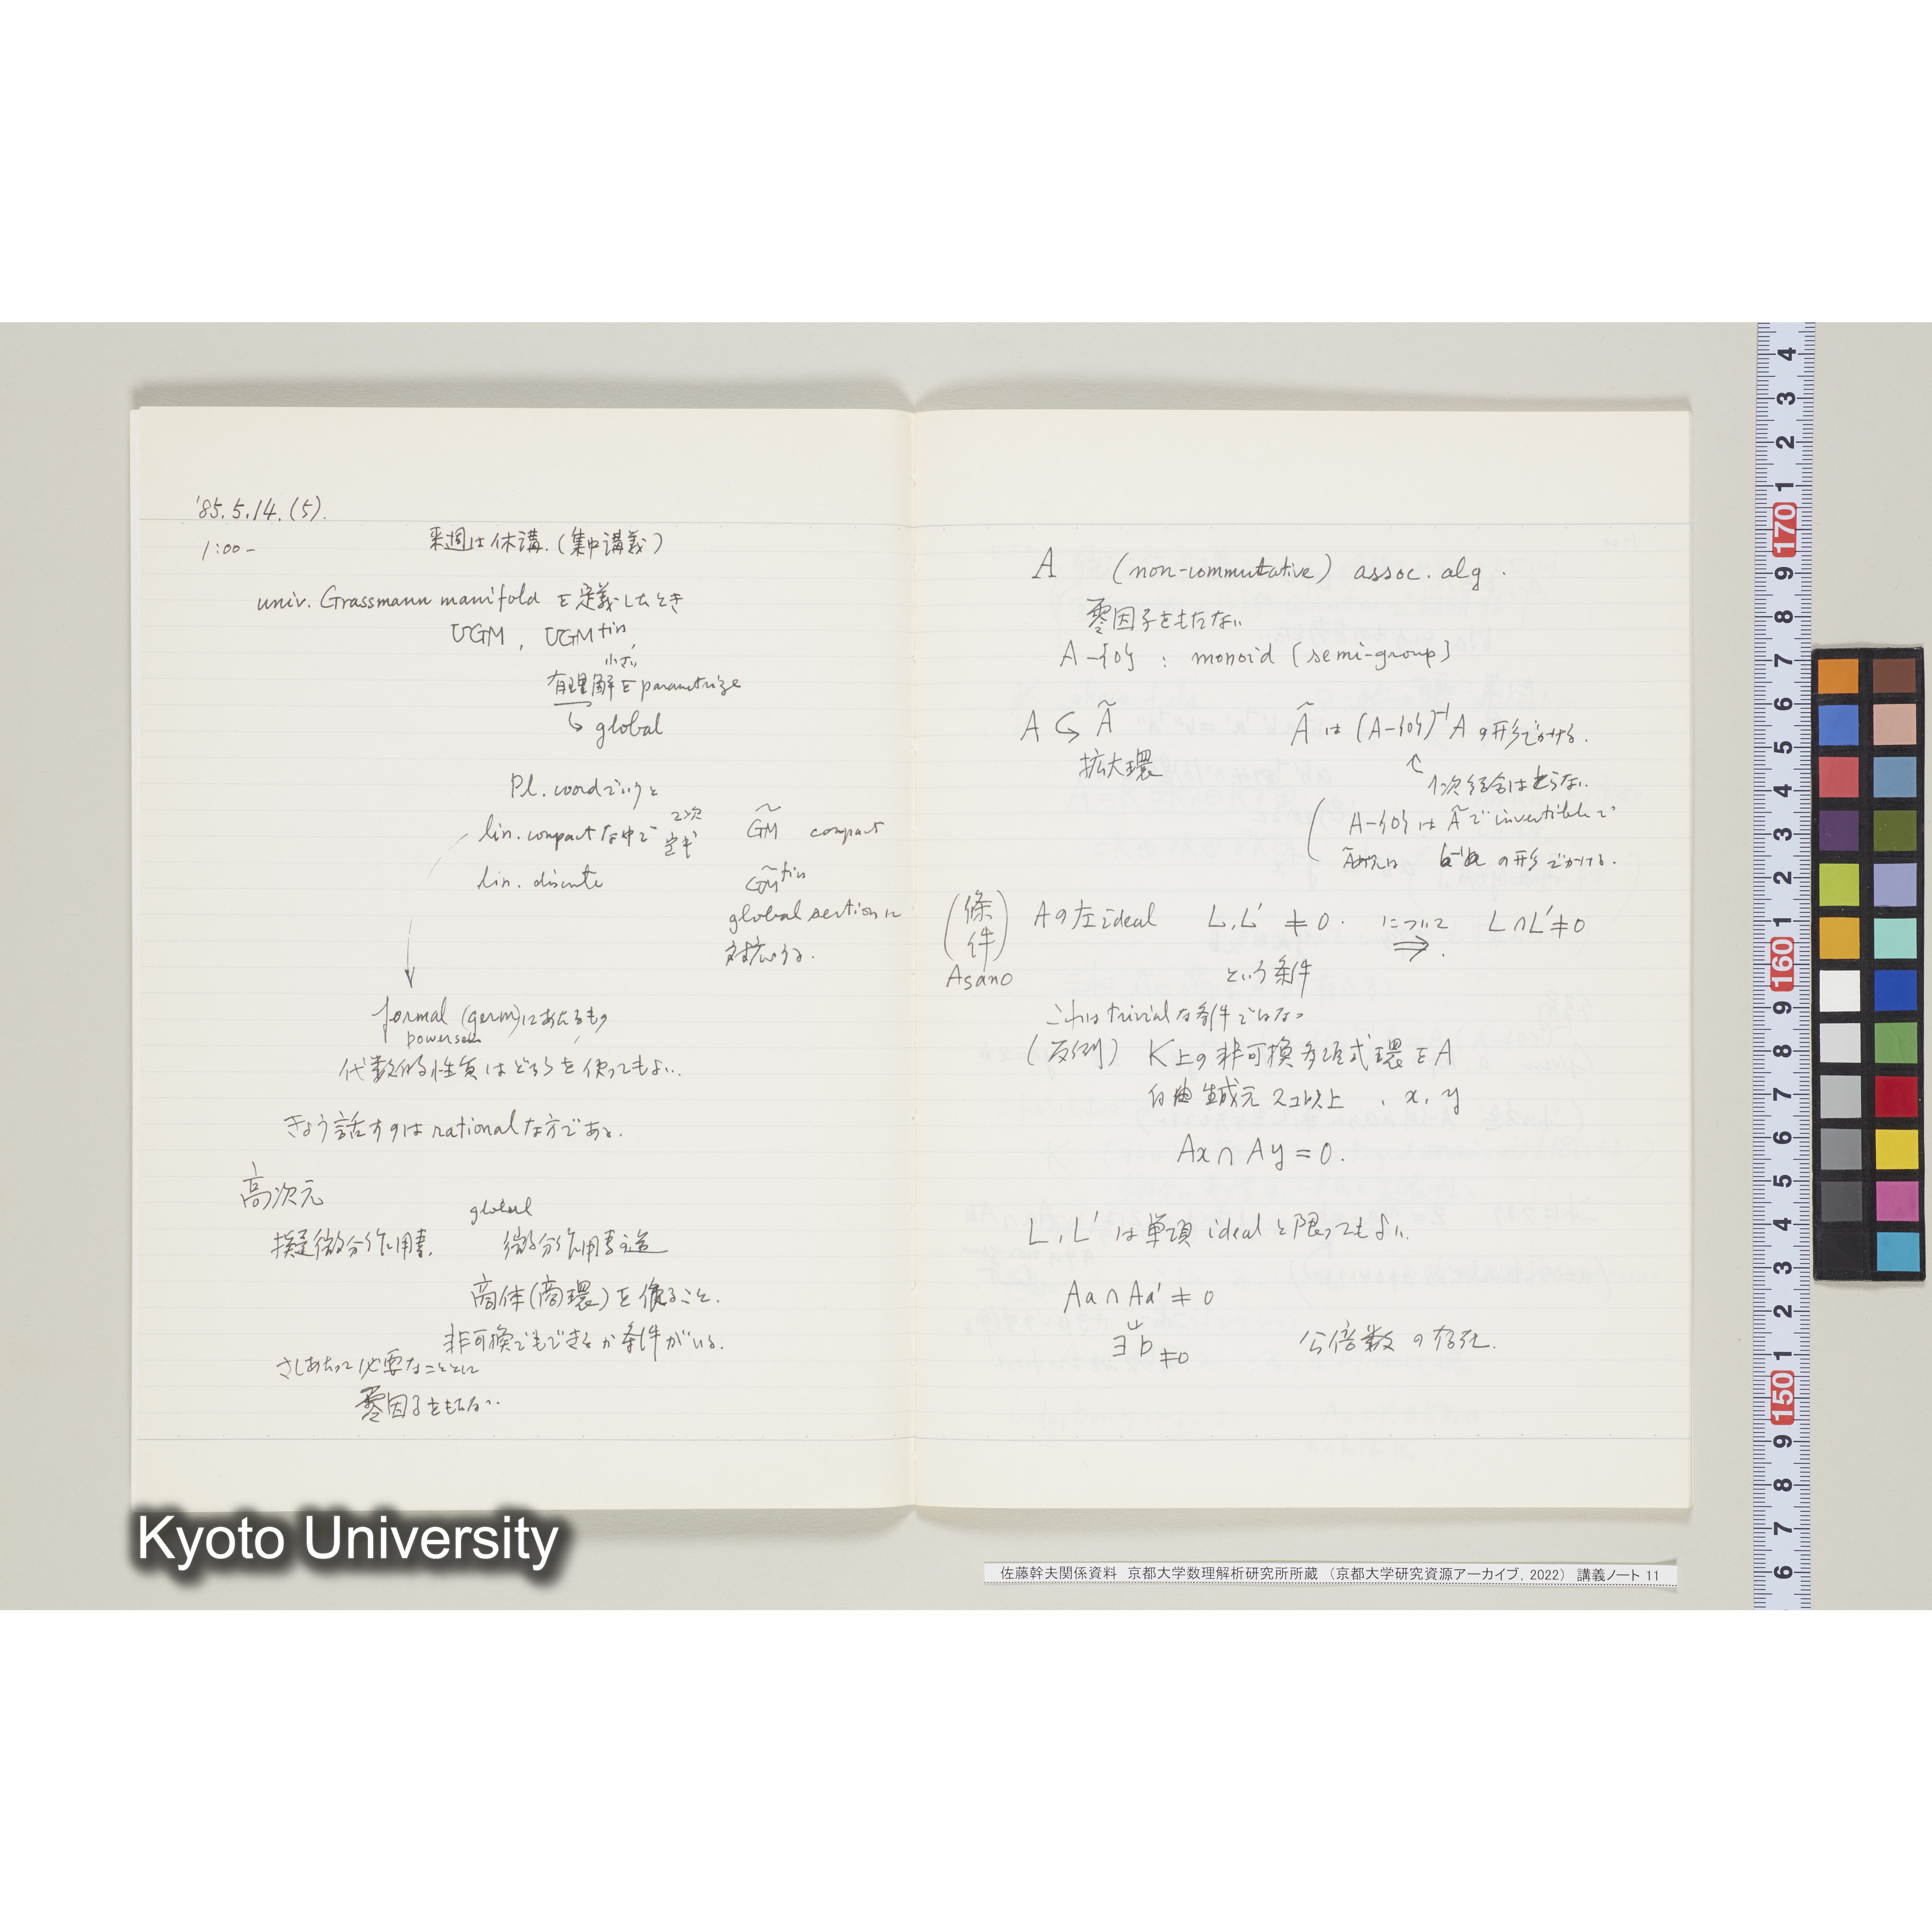 '85.5.14.(5).
1:00 –
来週は休講.(集中講義)
univ. Grassmann manifold を定義したとき
UGM , UGM fin,
小さい
有理解を parametrize
↪ global
Pl. coordでいうと
lin. compact な中で 2次
G̃M compact
lin. discrete
G̃M fin
global section に
対応する.
formal (germ)にあたるもの
power
代数的性質はどちらを使ってもよい.
きょう話すのは rational な方である.
高次元
global
擬微分作用素. 微分作用素
商体(商環)を作ること.
非可換でもできるが条件がいる.
さしあたって必要なこととして
零因子をもたない.
A (non-commutative) assoc. alg.
零因子をもたない
A-{0} : monoid (semi-group)
A ↪ Ã Ã は (A-{0})⁻¹A の形でかける.
拡大環
↑ 1次結合はとらない.
( A-{0} は Ã で invertible で
Ãの元は b⁻¹a の形でかける.
(条件) Aの左ideal L, L' ≠ 0. について ⇒ L∩L'≠0
Asano
という条件
これは trivial な条件ではない
(反例) K上の非可換多項式環を A
自由生成元 2コ以上 , x, y
Ax ∩ Ay = 0.
L, L' は単項 ideal と限ってもよい.
Aa ∩ Aa' ≠ 0
∪
∃ b ≠0 公倍数の存在.
Kyoto University
佐藤幹夫関係資料 京都大学数理解析研究所所蔵 (京都大学研究資源アーカイブ, 2022) 講義ノート 11
4
3
2
1
170
9
8
7
6
5
4
3
2
1
160
9
8
7
6
5
4
3
2
1
150
9
8
7
6